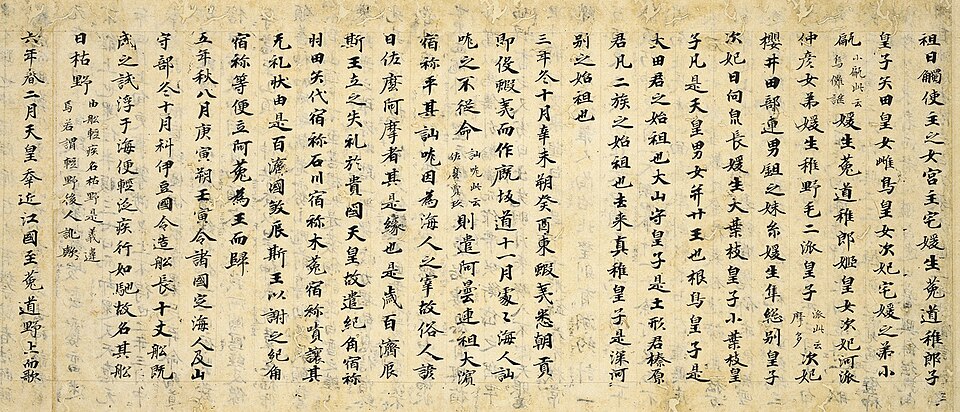 祖日觸使主之女宮主宅媛生菟道稚郎子
皇子矢田皇女雌鳥皇女次妃宅媛之弟小
甂小甂此云烏儺謎媛生菟道稚郎姬皇女次妃河派
仲彦女弟媛生稚野毛二派皇子派此云摩多次妃
櫻井田部連男鉏之妹糸媛生隼総別皇子
次妃日向泉長媛生大葉枝皇子小葉枝皇
子凡是天皇男女并廿王也根鳥皇子是
大田君之始祖也大山守皇子是土形君榛原
君凡二族之始祖也去来真稚皇子是深河
別之始祖也
三年冬十月辛未朔癸酉東蝦夷悉朝貢
即役蝦夷而作厩坂道十一月處々海人訕
哤之不従命訕哤此云佐麼賣玖則遣阿曇連祖大濱
宿祢平其訕哤因為海人之宰故俗人諺
曰佐麼阿摩者其是縁也是歳百濟辰
斯王立之失礼於貴國天皇故遣紀角宿祢
羽田矢代宿祢石川宿祢木菟宿祢嘖讓其
无礼状由是百濟國殺辰斯王以謝之紀角
宿祢等便立阿菟為王而歸
五年秋八月庚寅朔壬寅令諸國定海人及山
守部冬十月科伊豆國令造舩長十丈舩既
成之試浮于海便輕泛疾行如馳故名其舩
曰枯野由舩輕疾名枯野是義違焉若謂輕野後人訛歟
六年春二月天皇幸近江國至菟道野上而歌